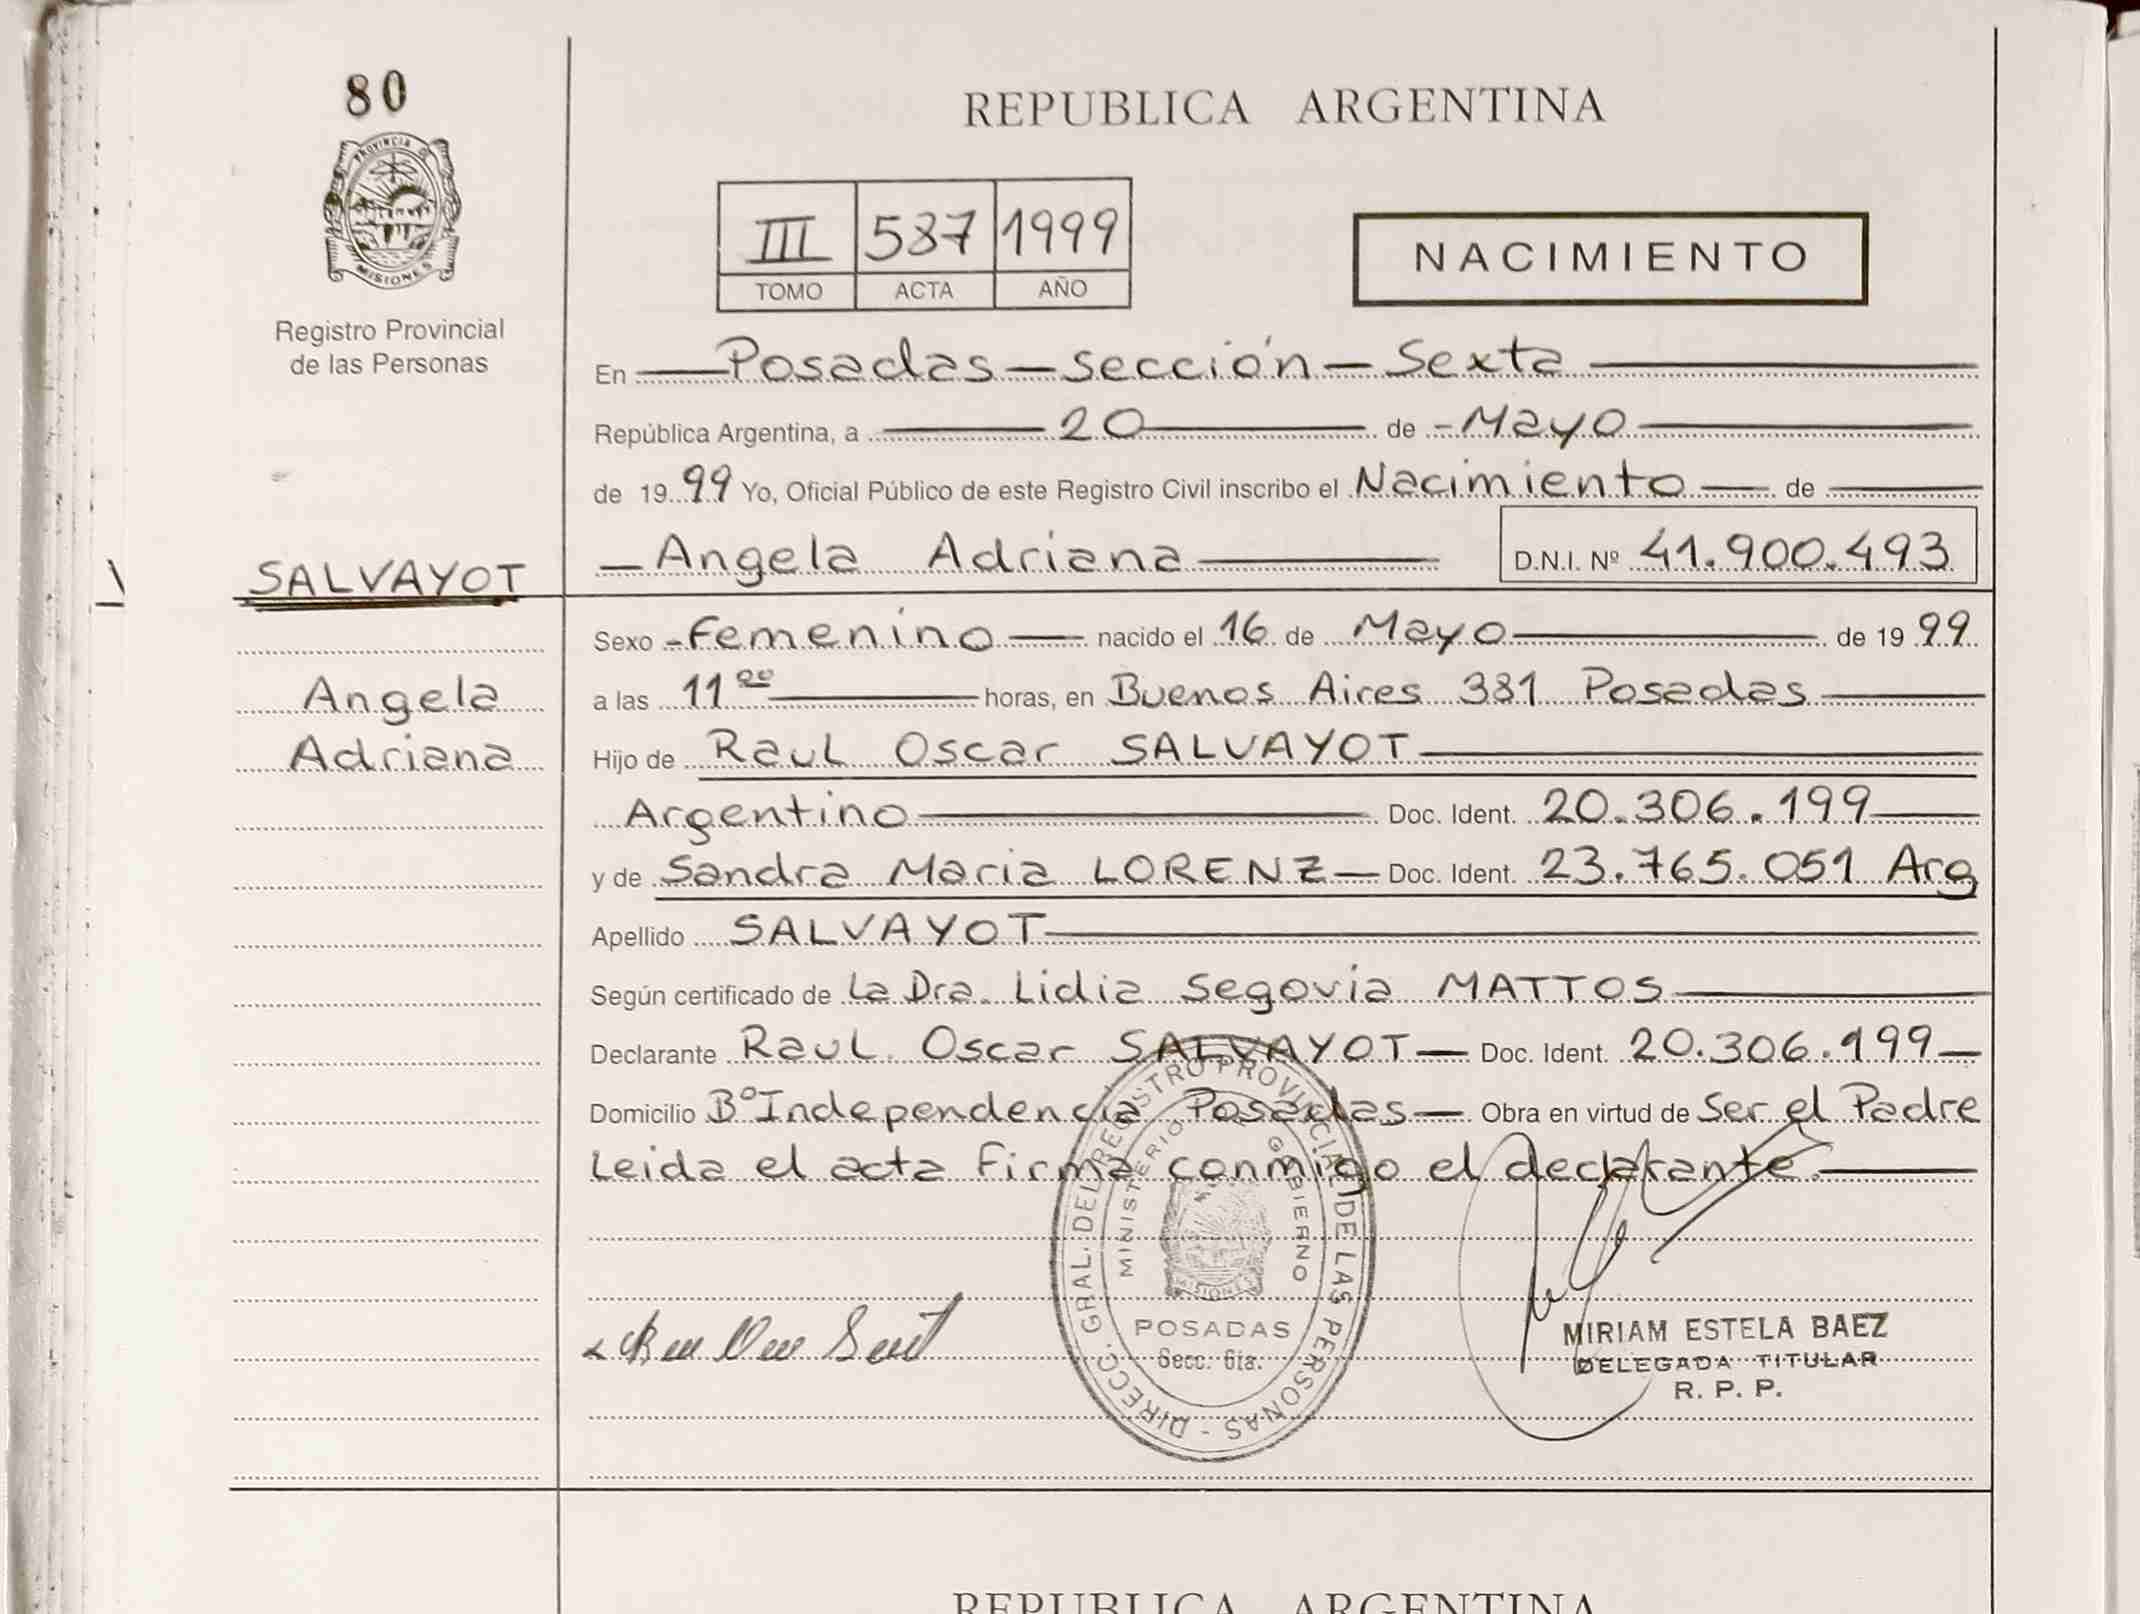 80
PROVINCIA DE
MISIONES
Registro Provincial
de las Personas
REPUBLICA ARGENTINA
III 587 1999
TOMO ACTA AÑO
NACIMIENTO
En Posadas - sección - Sexta
República Argentina, a 20 de - Mayo
de 1999 Yo, Oficial Público de este Registro Civil inscribo el Nacimiento de
SALVAYOT
- Angela Adriana D.N.I. Nº 41.900.493
Sexo - Femenino nacido el 16 de Mayo de 1999
Angela
a las 11 00 horas, en Buenos Aires 381 Posadas
Adriana
Hijo de Raul Oscar SALVAYOT
Argentino Doc. Ident. 20.306.199
y de Sandra Maria LORENZ - Doc. Ident. 23.765.051 Arg
Apellido SALVAYOT
Según certificado de la Dra. Lidia Segovia MATTOS
Declarante Raul Oscar SALVAYOT - Doc. Ident. 20.306.199 -
Domicilio Bº Independencia Posadas - Obra en virtud de Ser el Padre
Leida el acta firma conmigo el declarante.
DIRECC. GRAL. DEL REGISTRO PROVINCIAL DE LAS PERSONAS -
MINISTERIO GOBIERNO
MISIONES
POSADAS
Secc. 6ta.
MIRIAM ESTELA BAEZ
DELEGADA TITULAR
R. P. P.
REPUBLICA ARGENTINA